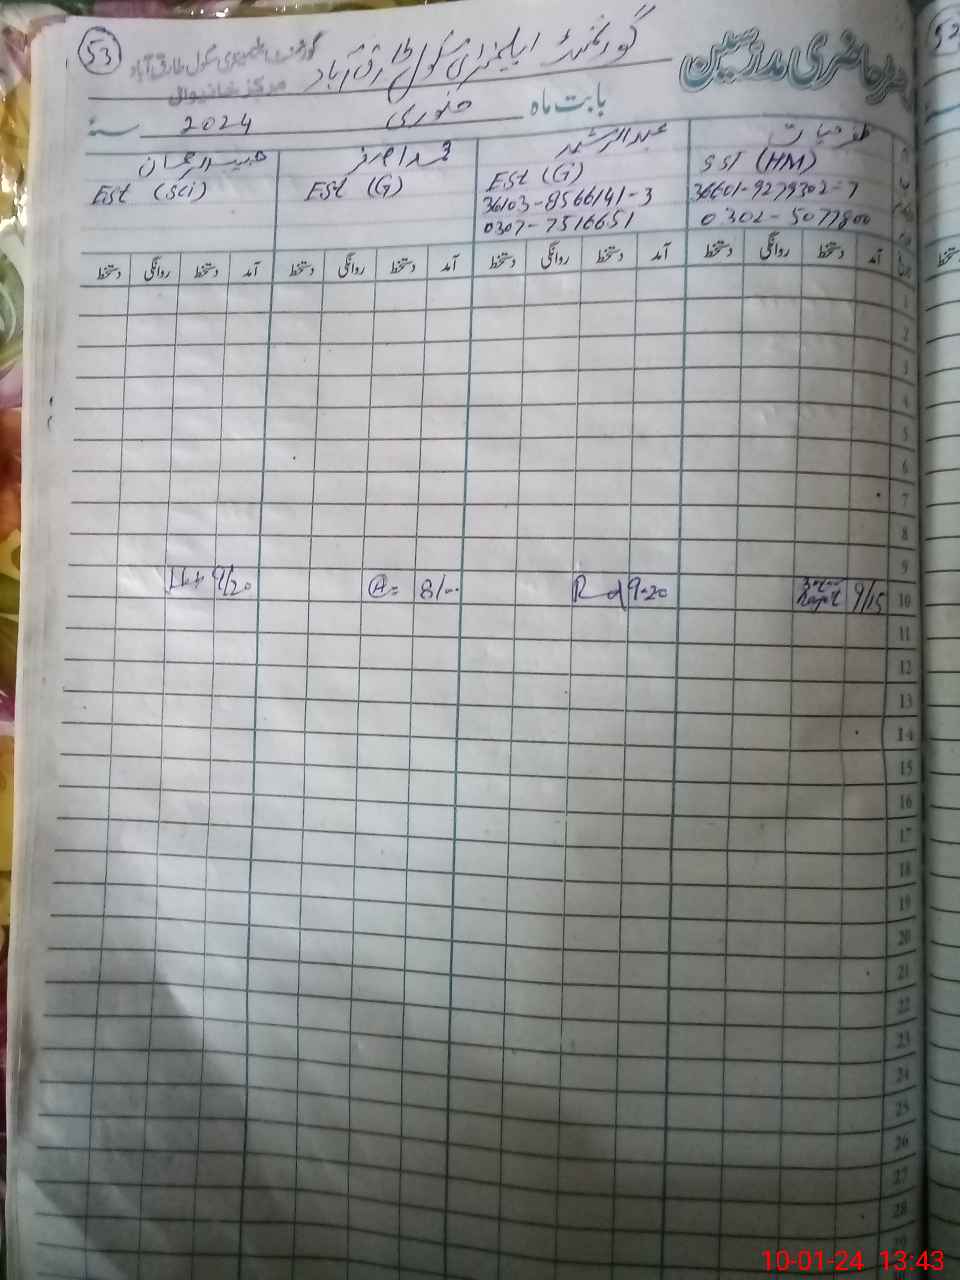 53
گورنمنٹ ایلیمنٹری سکول طارق آباد
مرکز خانیوال
گورنمنٹ ایلیمنٹری سکول طارق آباد
حاضری مدرسین
بابت ماہ جنوری 2024 سنہ
حیات
SST (HM)
36601-9279702-7
0302-5077800
عبدالرشید
ESt (G)
36103-8566141-3
0307-7516651
ESt (G)
ESt (Sci)
آمد دستخط روانگی دستخط آمد دستخط روانگی دستخط آمد دستخط روانگی دستخط آمد دستخط روانگی دستخط
1
2
3
4
5
6
7
8
9
10 9/15 Hayat 9-20 8/-- 9/20
11
12
13
14
15
16
17
18
19
20
21
22
23
24
25
26
27
28
29
10-01-24 13:43